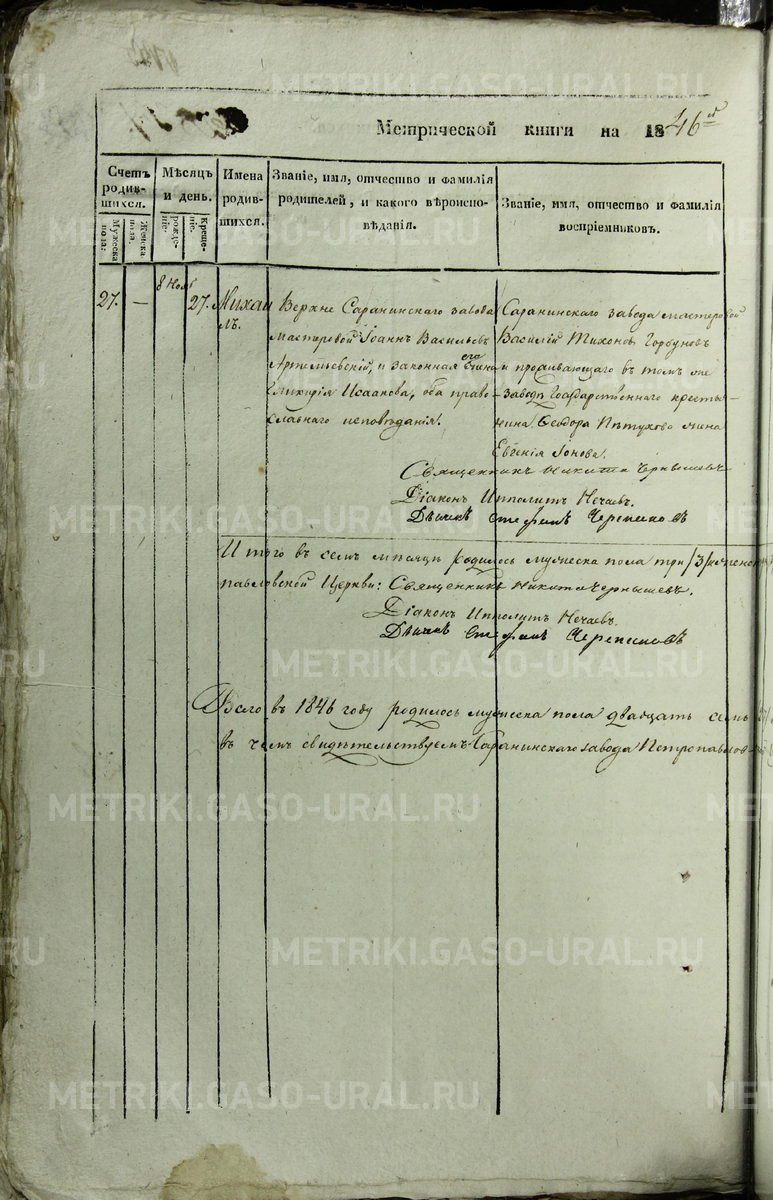 Метрической книги на 1846й
Счетъ родив-шихся.
Мужеска пола:
Женска пола.
Мѣсяцъ и день.
рожде-ніе.
Креще-ніе.
Имена родив-шихся.
Званіе, имя, отчество и фамилія
родителей, и какого вѣроиспо-
вѣданія.
Званіе, имя, отчество и фамилія
воспріемниковъ.
27.
—
8 Нояб
27.
Михаи
лъ.
Верхне Саранинскаго завода
мастеровой Іоаннъ Васильевъ
Артемьевскій, и законная его жена
Исаакова, оба право-
славнаго исповѣданія.
Саранинскаго завода мастеровой
Василій Тихоновъ Горбуновъ
и проживающаго въ томъ же
заводѣ Государственнаго крестья-
нина Ѳеодора Пѣтухова жена
Евгенія Іонова.
Священникъ Никита Чернышевъ
Діаконъ Ипполитъ Нечаевъ.
Дьячекъ Стефанъ Черепановъ
Итого въ семъ мѣсяцѣ родилось мужеска пола три /3/
павловской Церкви: Священникъ Никита Чернышевъ.
Діаконъ Ипполитъ Нечаевъ.
Дьячекъ Стефанъ Черепановъ
Всего въ 1846 году родилось мужеска пола двадцать семь
въ чемъ свидѣтельствуемъ Саранинскаго завода Петропавлов-
METRIKI.GASO-URAL.RU